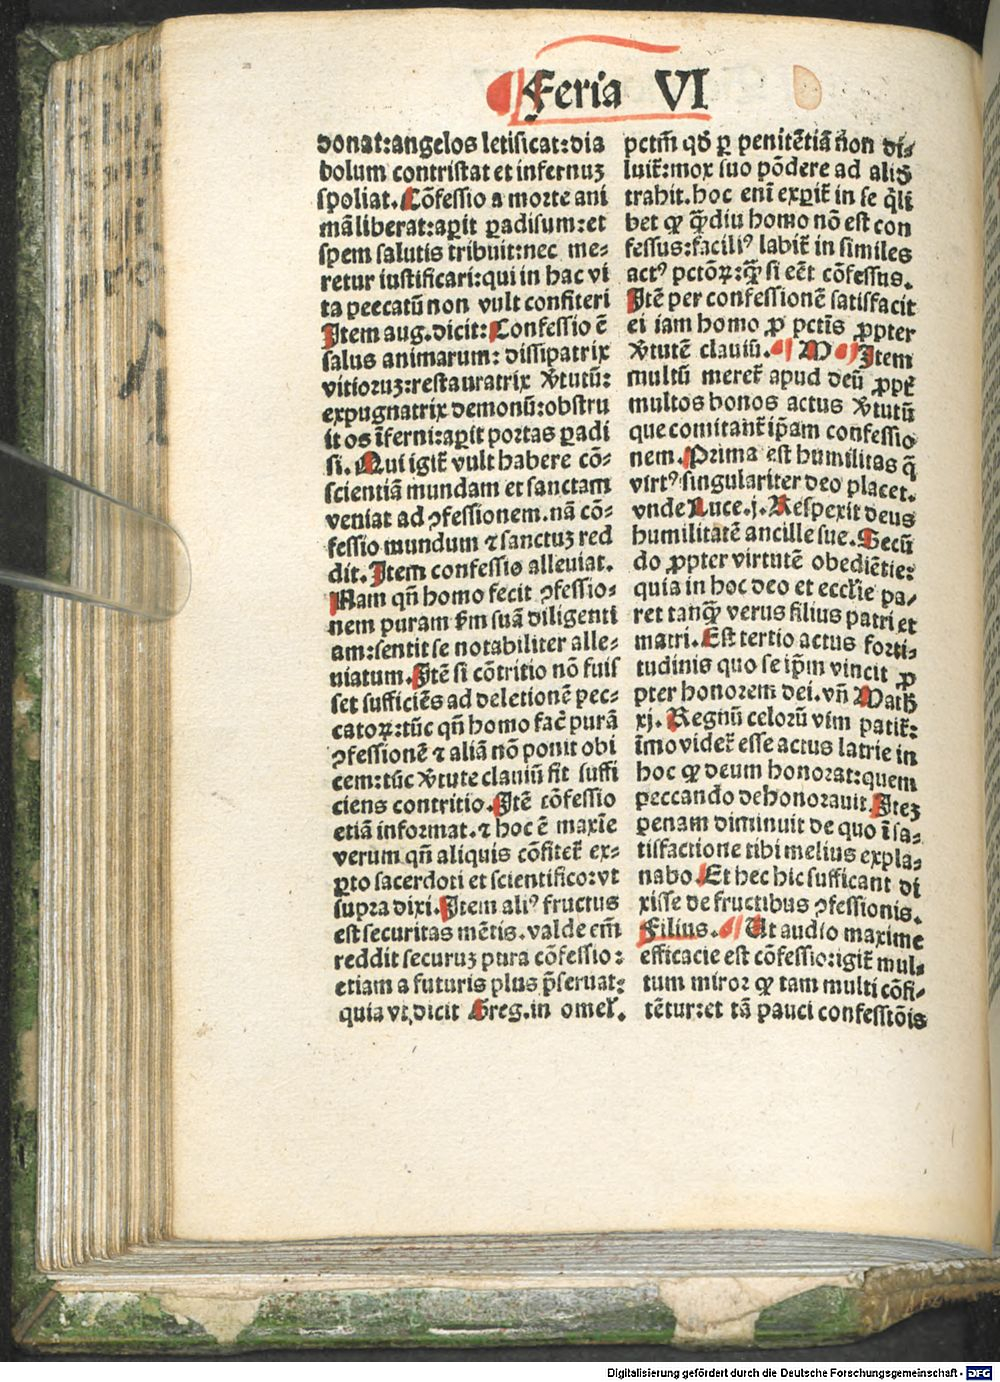 Feria VI
donat:angelos letificat:dia
bolum contristat et infernuʒ
spoliat. Cōfessio a morte ani
mā liberat:aꝑit ꝑadisum:et
spem salutis tribuit:nec me⸗
retur iustificari:qui in hac vi
ta peccatū non vult confiteri
Item aug. dicit: Confessio ē
salus animarum: dissipatrix
vitioruʒ:restauratrix v̄tutū:
expugnatrix demonū:obstru
it os īferni:aꝑit portas ꝑadi
si. Qui igit̄ vult habere cō⸗
scientiā mundam et sanctam
veniat ad ꝯfessionem. nā cō⸗
fessio mundum ⁊ sanctuʒ red
dit. Item confessio alleuiat.
Nam qn̄ homo fecit ꝯfessio⸗
nem puram ẜm suā diligenti
am:sentit se notabiliter alle⸗
uiatum. Itē si cōtritio nō fuis
set sufficiēs ad deletionē pec⸗
catoꝝ:tūc qn̄ homo fac̄ purā
ꝯfessionē ⁊ aliā nō ponit obi
cem:tūc v̄tute clauiū fit suffi
ciens contritio. Itē cōfessio
etiā informat. ⁊ hoc ē maxīe
verum qn̄ aliquis cōfitet̄ ex⸗
ꝑto sacerdoti et scientifico:vt
supra dixi. Item aliꝰ fructus
est securitas mētis. valde em̄
reddit securuʒ pura cōfessio:
etiam a futuris plus p̄seruat:
quia vt dicit Greg. in omel̄.
pctm̄ qd̓ ꝑ penitētiā non di⸗
luit̄:mox suo pōdere ad aliud̓
trahit. hoc enī expit̄ in se q̄li
bet ꝙ q̄diu homo nō est con
fessus:faciliꝰ labit̄ in similes
actꝰ pctōꝝ:q̄ si eēt cōfessus.
Itē per confessionē satisfacit
ei iam homo ꝓ pctīs ꝓpter
v̄tutē clauiū. M Item
multū meret̄ apud deū ꝓpt̄
multos bonos actus v̄tutū
que comitant̄ ip̄am confessio
nem. Prima est humilitas q̄
virtꝰ singulariter deo placet.
vnde Luce. j. Respexit deus
humilitatē ancille sue. Secū
do ꝓpter virtutē obediētie:
quia in hoc deo et eccl̄ie pa⸗
ret tanq̄ verus filius patri et
matri. Est tertio actus forti⸗
tudinis quo se ip̄m vincit ꝓ
pter honorem dei. vn̄ Math̄
xj. Regnū celorū vim patit̄:
īmo videt̄ esse actus latrie in
hoc ꝙ deum honorat:quem
peccando dehonorauit. Iteʒ
penam diminuit de quo ī sa⸗
tisfactione tibi melius expla⸗
nabo. Et hec hic sufficiant di
xisse de fructibus ꝯfessionis.
Filius. Ut audio maxime
efficacie est cōfessio:igit̄ mul⸗
tum miror ꝙ tam multi cōfi⸗
tētur:et tā pauci confessiōis
Digitalisierung gefördert durch die Deutsche Forschungsgemeinschaft - DFG